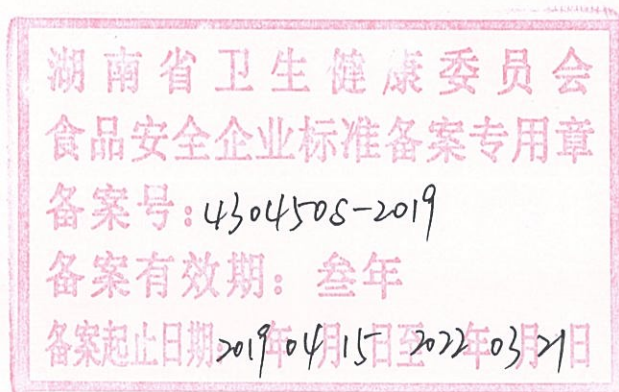 湖南省卫生健康委员会
食品安全企业标准备案专用章
备案号:430450S-2019
备案有效期:叁年
备案起止日期:2019年04月15日至2022年03月21日